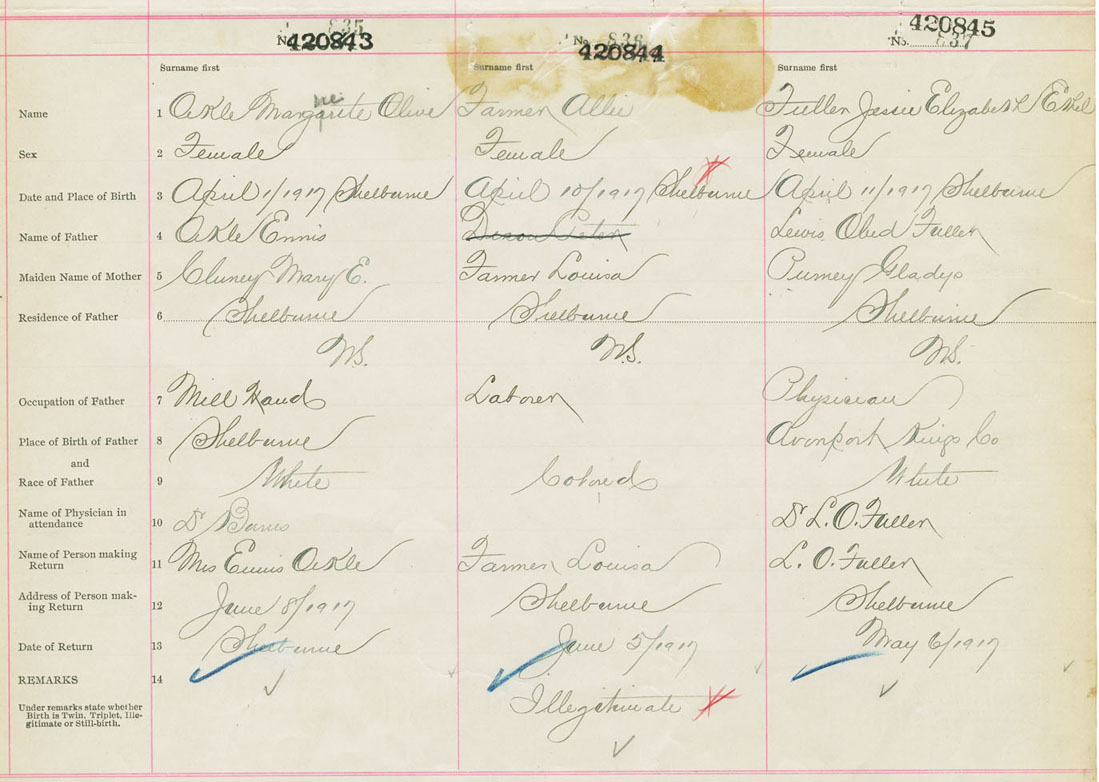 No. 835 420843
No. 836 420844
No. 837 420845
Surname first Surname first Surname first
Name 1 Oikle Margarite ne Olive Farmer Allie Fuller Jessie Elizabeth Ethel
Sex 2 Female Female Female
Date and Place of Birth 3 April 1/1917 Shelburne April 10/1917 Shelburne April 11/1917 Shelburne
Name of Father 4 Oikle Ennis Dixon Peter Lewis Obed Fuller
Maiden Name of Mother 5 Cluney Mary E. Farmer Louisa Purney Gladys
Residence of Father 6 Shelburne Shelburne Shelburne
N.S. N.S. N.S.
Occupation of Father 7 Mill Hand Laborer Physician
Place of Birth of Father 8 Shelburne Avonport Kings Co
and
Race of Father 9 White Colored White
Name of Physician in
attendance 10 Dr Dr L. O. Fuller
Name of Person making
Return 11 Mrs Ennis Oikle Farmer Louisa L. O. Fuller
Address of Person mak-
ing Return 12 June 8/1917 Shelburne Shelburne
Date of Return 13 Shelburne June 5/1917 May 6/1917
REMARKS 14
Illegitimate
Under remarks state whether
Birth is Twin, Triplet, Ille-
gitimate or Still-birth.